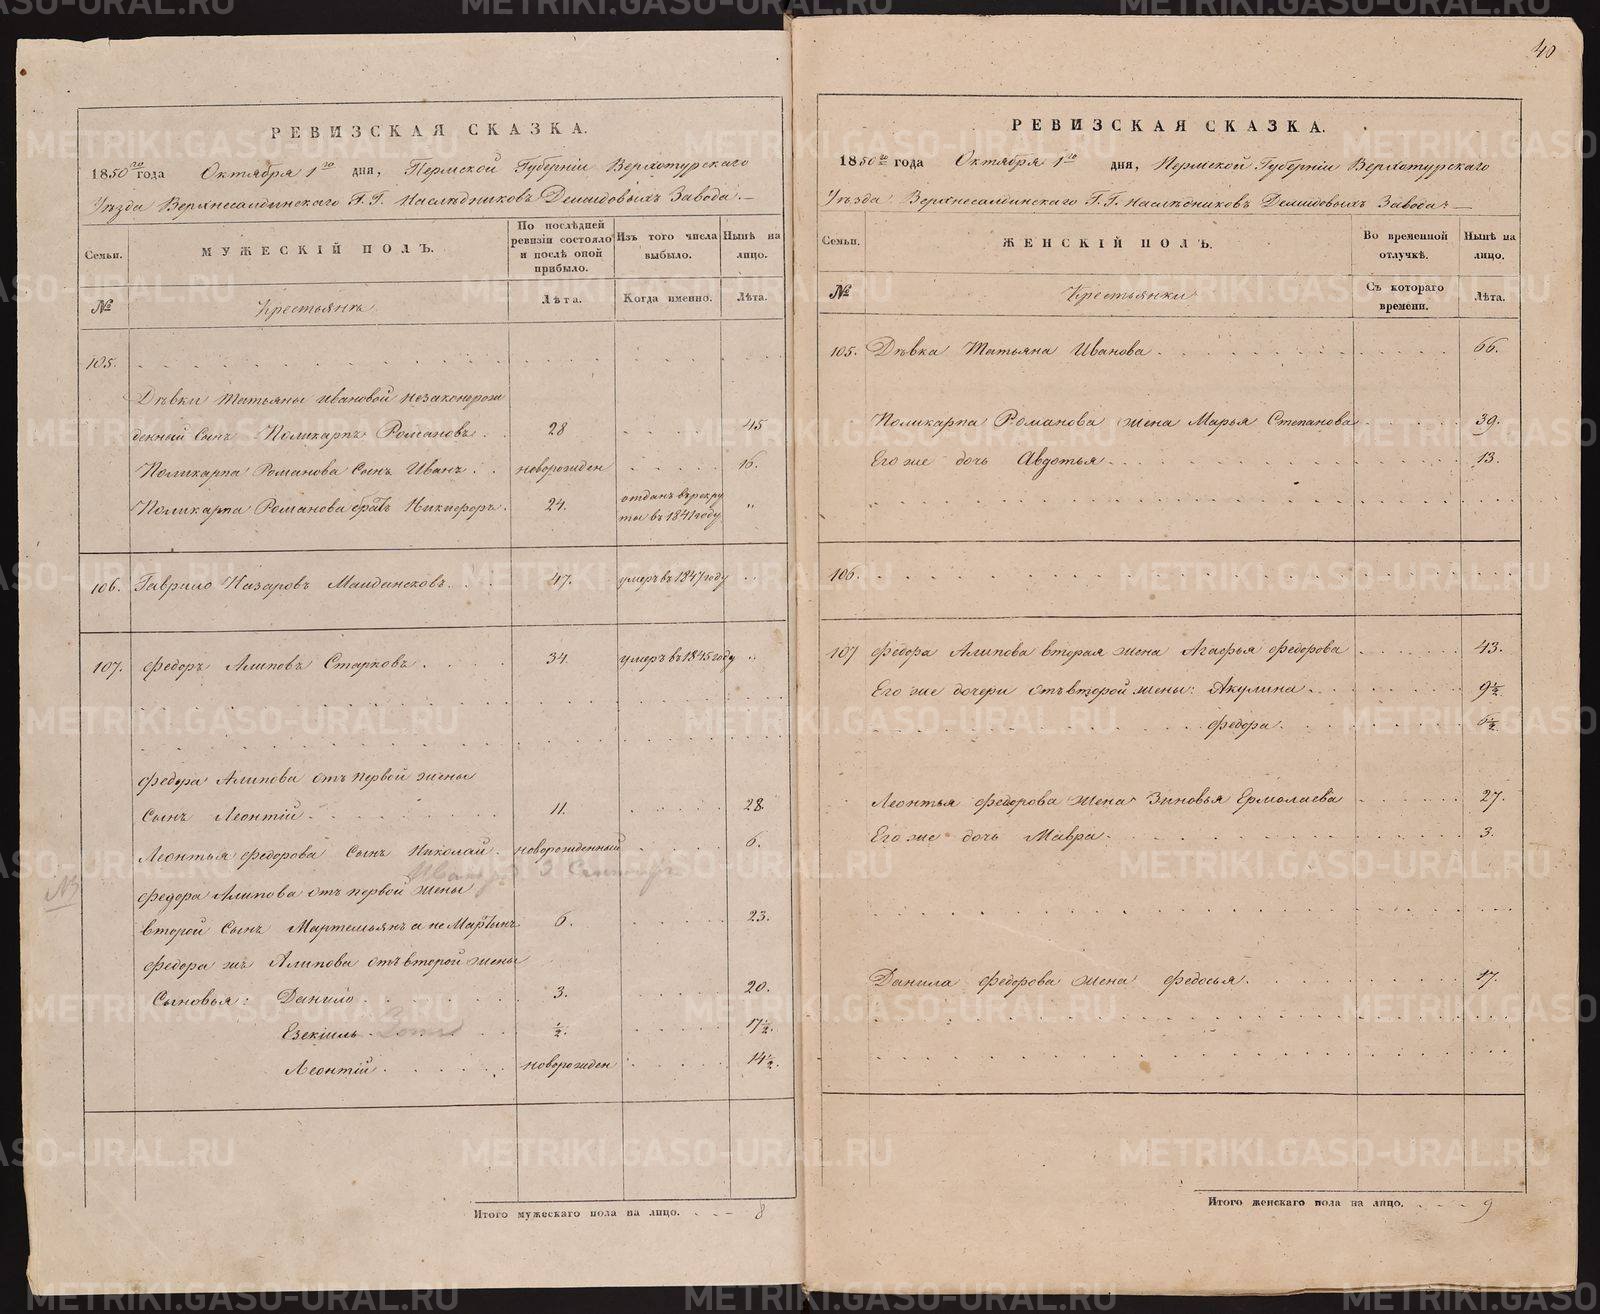 40
РЕВИЗСКАЯ СКАЗКА.
1850го года Октября 1го дня, Пермской Губернiи Верхотурскаго
Уѣзда Верхнесалдинскаго Г.Г. Наслѣдниковъ Демидовыхъ Завода.
Семьи. МУЖЕСКIЙ ПОЛЪ. По послѣдней ревизiи состояло и послѣ оной прибыло. Изъ того числа выбыло. Нынѣ на лицо.
№ Крестьянъ Лѣта. Когда именно. Лѣта.
105.
Дѣвки Татьяны Ивановой незаконорож
денный Сынъ Поликарпъ Романовъ. 28 45
Поликарпа Романова Сынъ Иванъ. новорожден 16.
Поликарпа Романова братъ Никифоръ. 24. отданъ въ рекру
ты въ 1841 году „
106. Гаврило Назаровъ 47. умеръ въ 1847 году
107. Федоръ Алиповъ Старковъ. 34. умеръ въ 1845 году „
Федора Алипова отъ первой жены
Сынъ Леонтiй. 11. 28
Леонтья Федорова Сынъ Николай. новорожденный 6.
Федора Алипова отъ первой жены
второй Сынъ Мартемьянъ а не Мартынъ 6. 23.
Федора жъ Алипова отъ второй жены
Сыновья: Данило. 3. 20.
Езекiиль. ½. 17½.
Леонтiй. новорожден 14½.
Итого мужескаго пола на лицо. 8
РЕВИЗСКАЯ СКАЗКА.
1850го года Октября 1го дня, Пермской Губернiи Верхотурскаго
Уѣзда Верхнесалдинскаго Г.Г. Наслѣдниковъ Демидовыхъ Завода.
Семьи. ЖЕНСКIЙ ПОЛЪ. Во временной отлучкѣ. Нынѣ на лицо.
№ Крестьянки Съ котораго времени. Лѣта.
105. Дѣвка Татьяна Иванова. 66.
Поликарпа Романова жена Марья Степанова 39.
Его же дочь Авдотья. 13.
106.
107 Федора Алипова вторая жена Агафья Федорова 43.
Его же дочери отъ второй жены: Акулина. 9½
Федора. 6½
Леонтья Федорова жена Зиновья Ермолаева 27.
Его же дочь Мавра. 3.
Данила Федорова жена Федосья. 17.
Итого женскаго пола на лицо. 9
METRIKI.GASO-URAL.RU